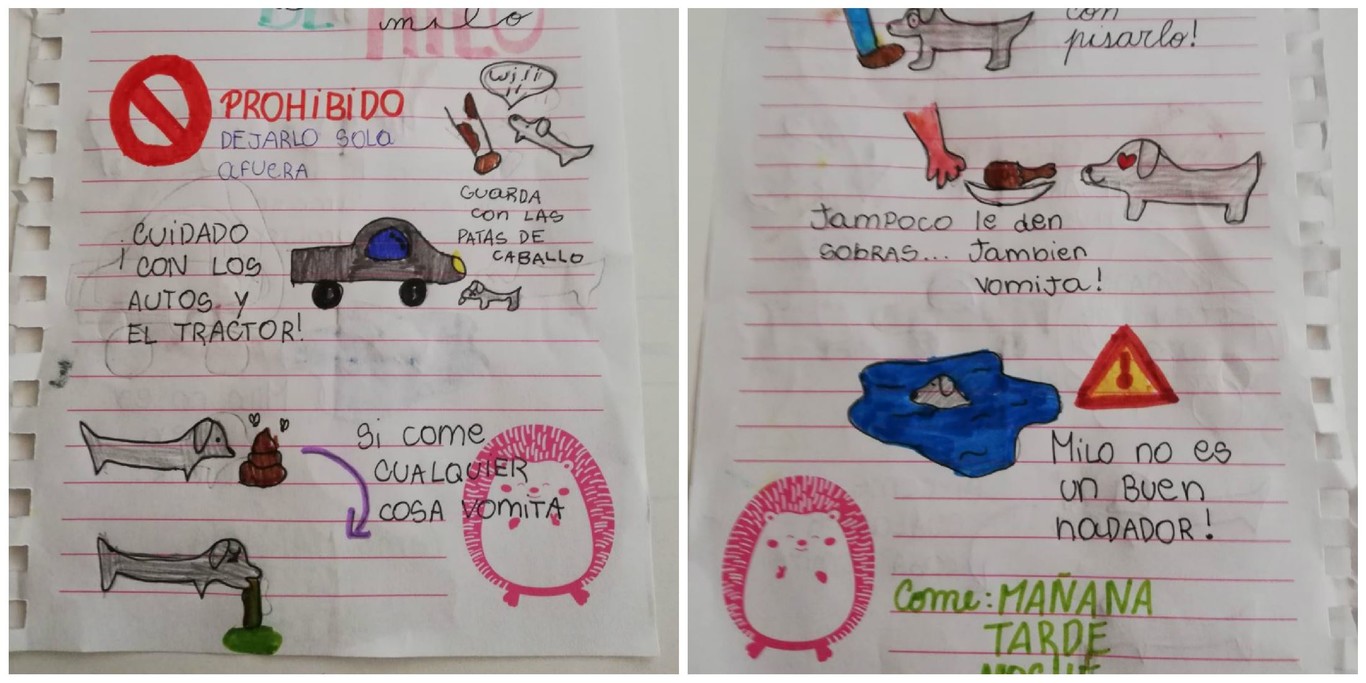 DE MILO
milo
PROHiBiDO
DEJARLO SOLO
AFUERA
Wiiii
GUARDA
CON LAS
PATAS DE
CABALLO
¡CUiDADO
CON LOS
AUTOS Y
EL TRACTOR!
Si come
CUALQUIER
COSA VOMiTA
con
pisarlo!
Tampoco le den
SOBRAS... Tambien
vomita!
MiLO no es
un BUEN
nADADOR!
Come: MAÑANA
TARDE
NOCHE